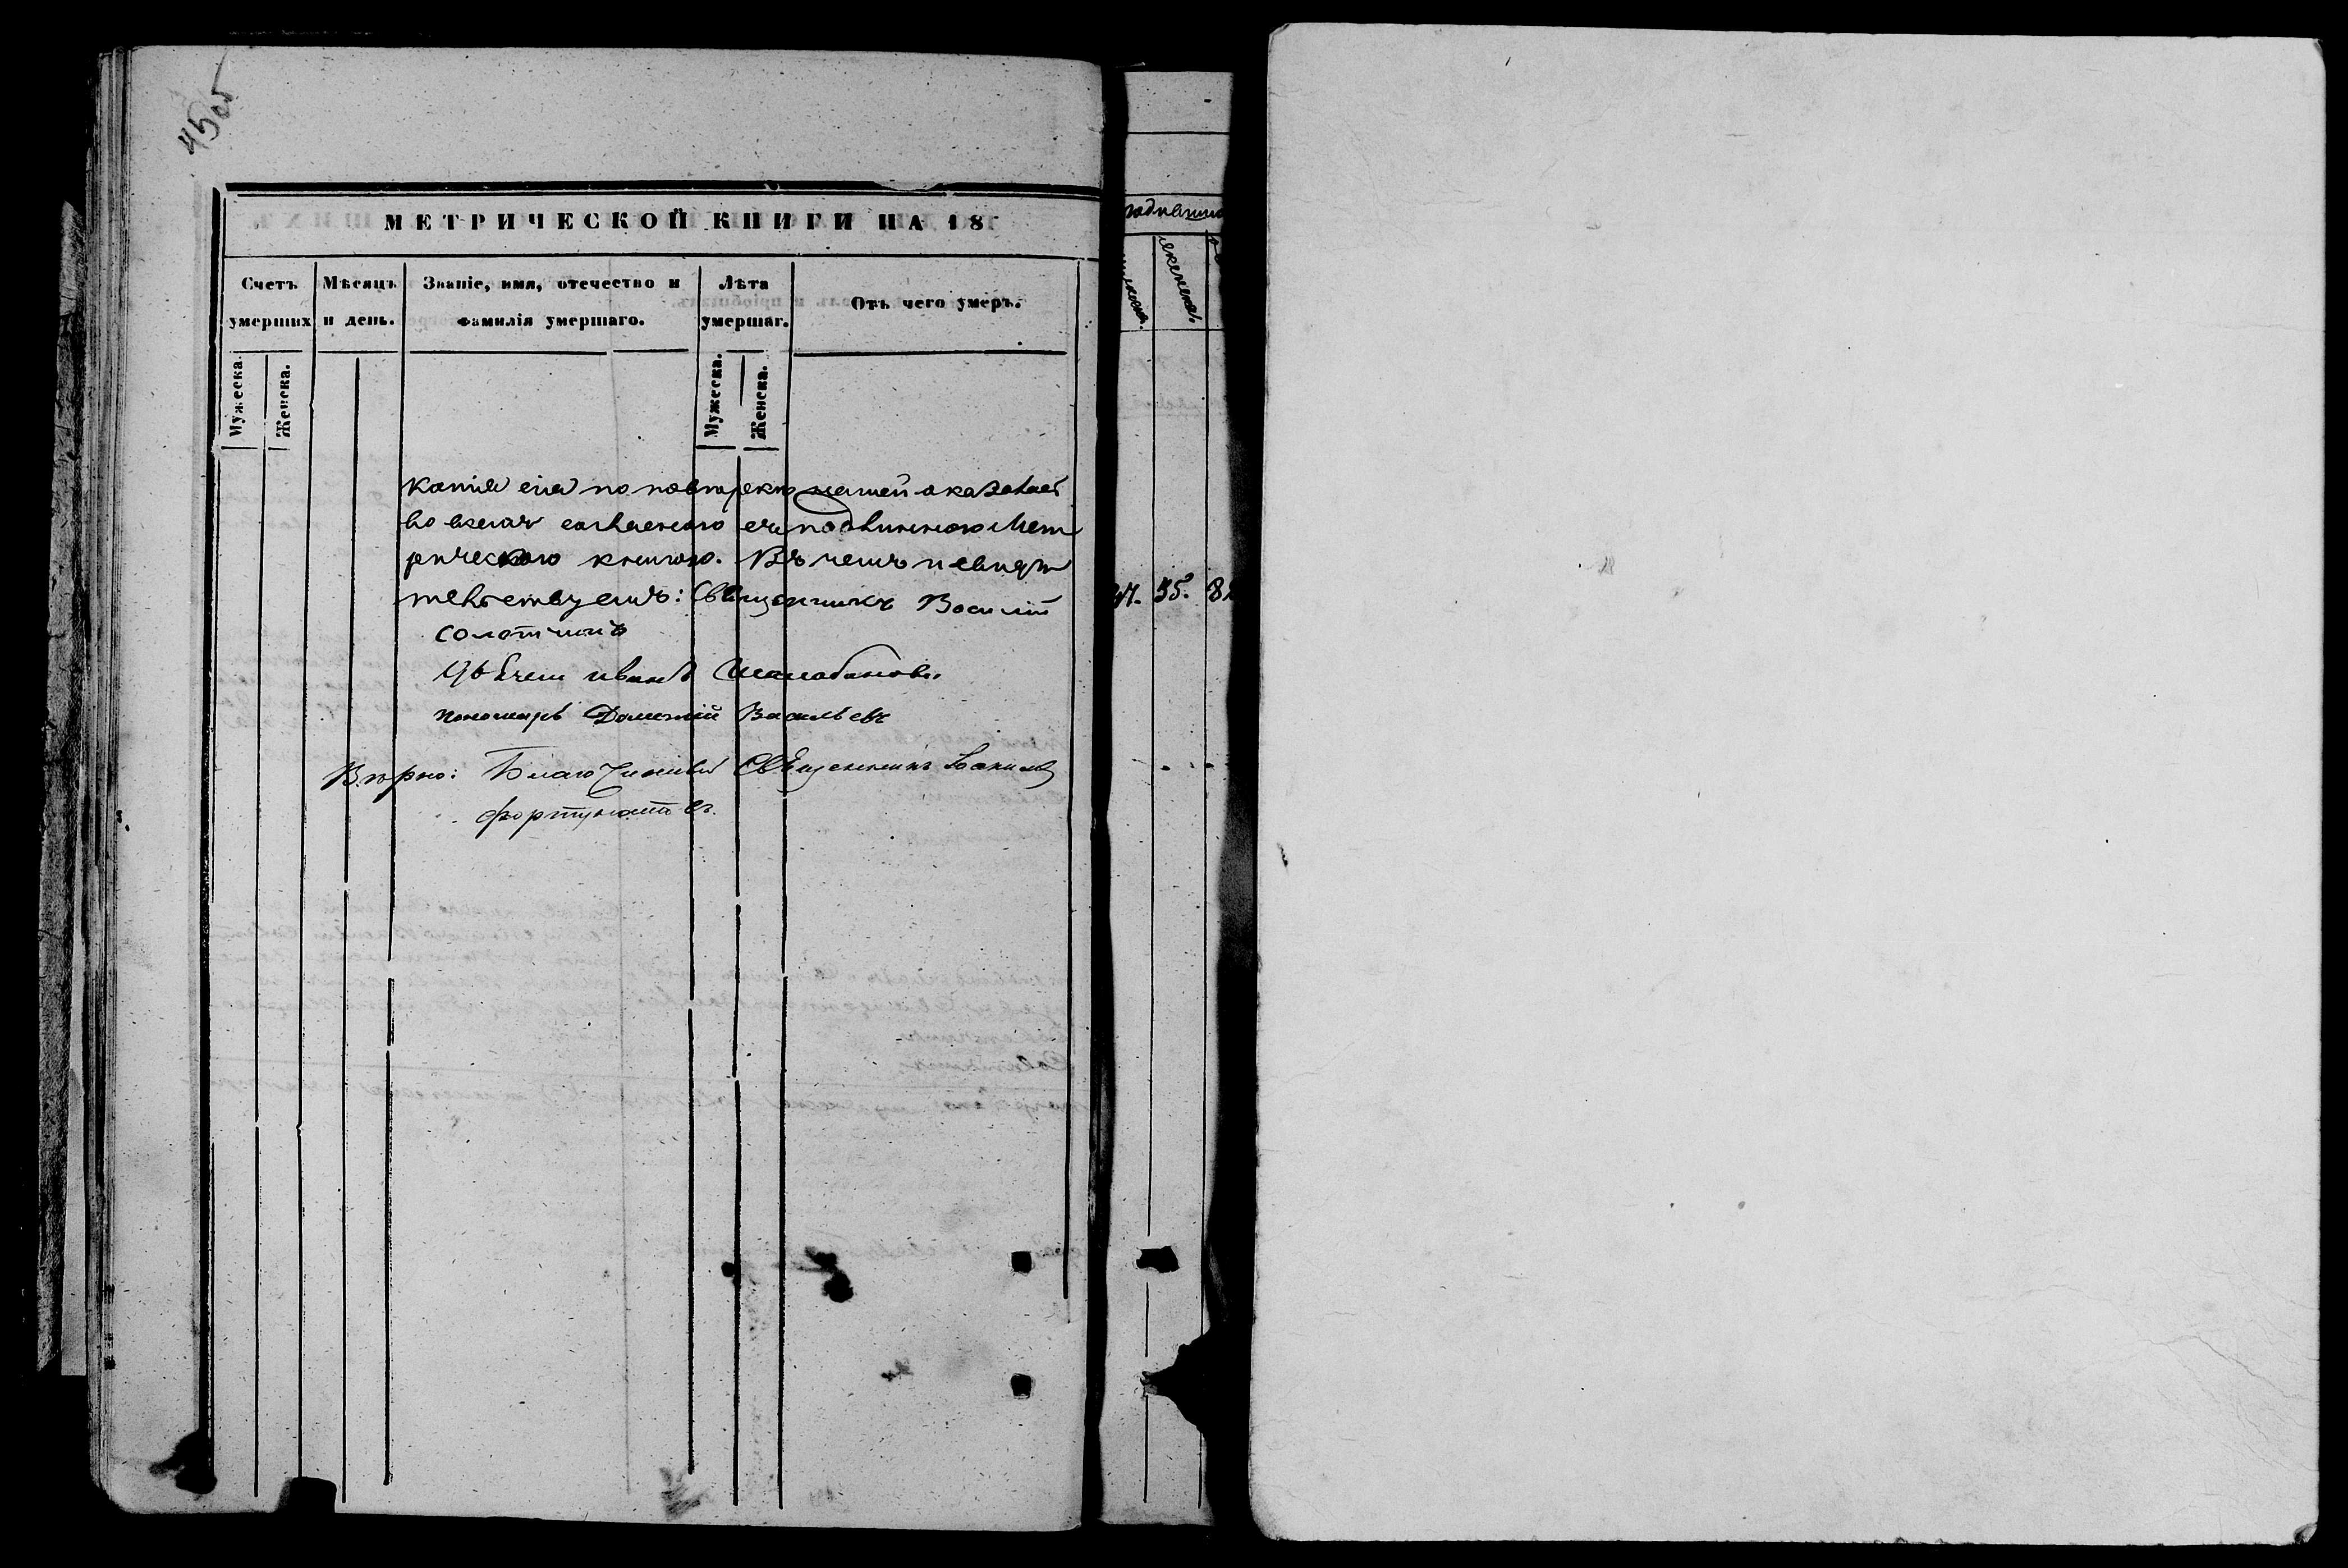 45об
МЕТРИЧЕСКОЙ КНИГИ НА 18
Счетъ умершихъ
Мѣсяцъ и день.
Званіе, имя, отечество и фамилія умершаго.
Лѣта умершаг.
Отъ чего умеръ.
Мужеска.
Женска.
Мужеска.
Женска.
Копія сія по повѣркѣ нашей оказалась
во всемъ согласною съ подлинною Мет
рическою книгою. Въ чемъ и свидѣ
тельствуемъ: Священникъ Василій
Солотчинъ
Дьячекъ Иванъ
пономарь Василь евъ
Вѣрно: Благочинный Священникъ
Фортунатовъ.
женска.
47. 35. 82